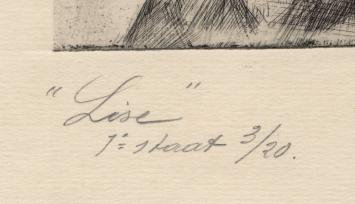 "Lise"
1e staat 3/20.